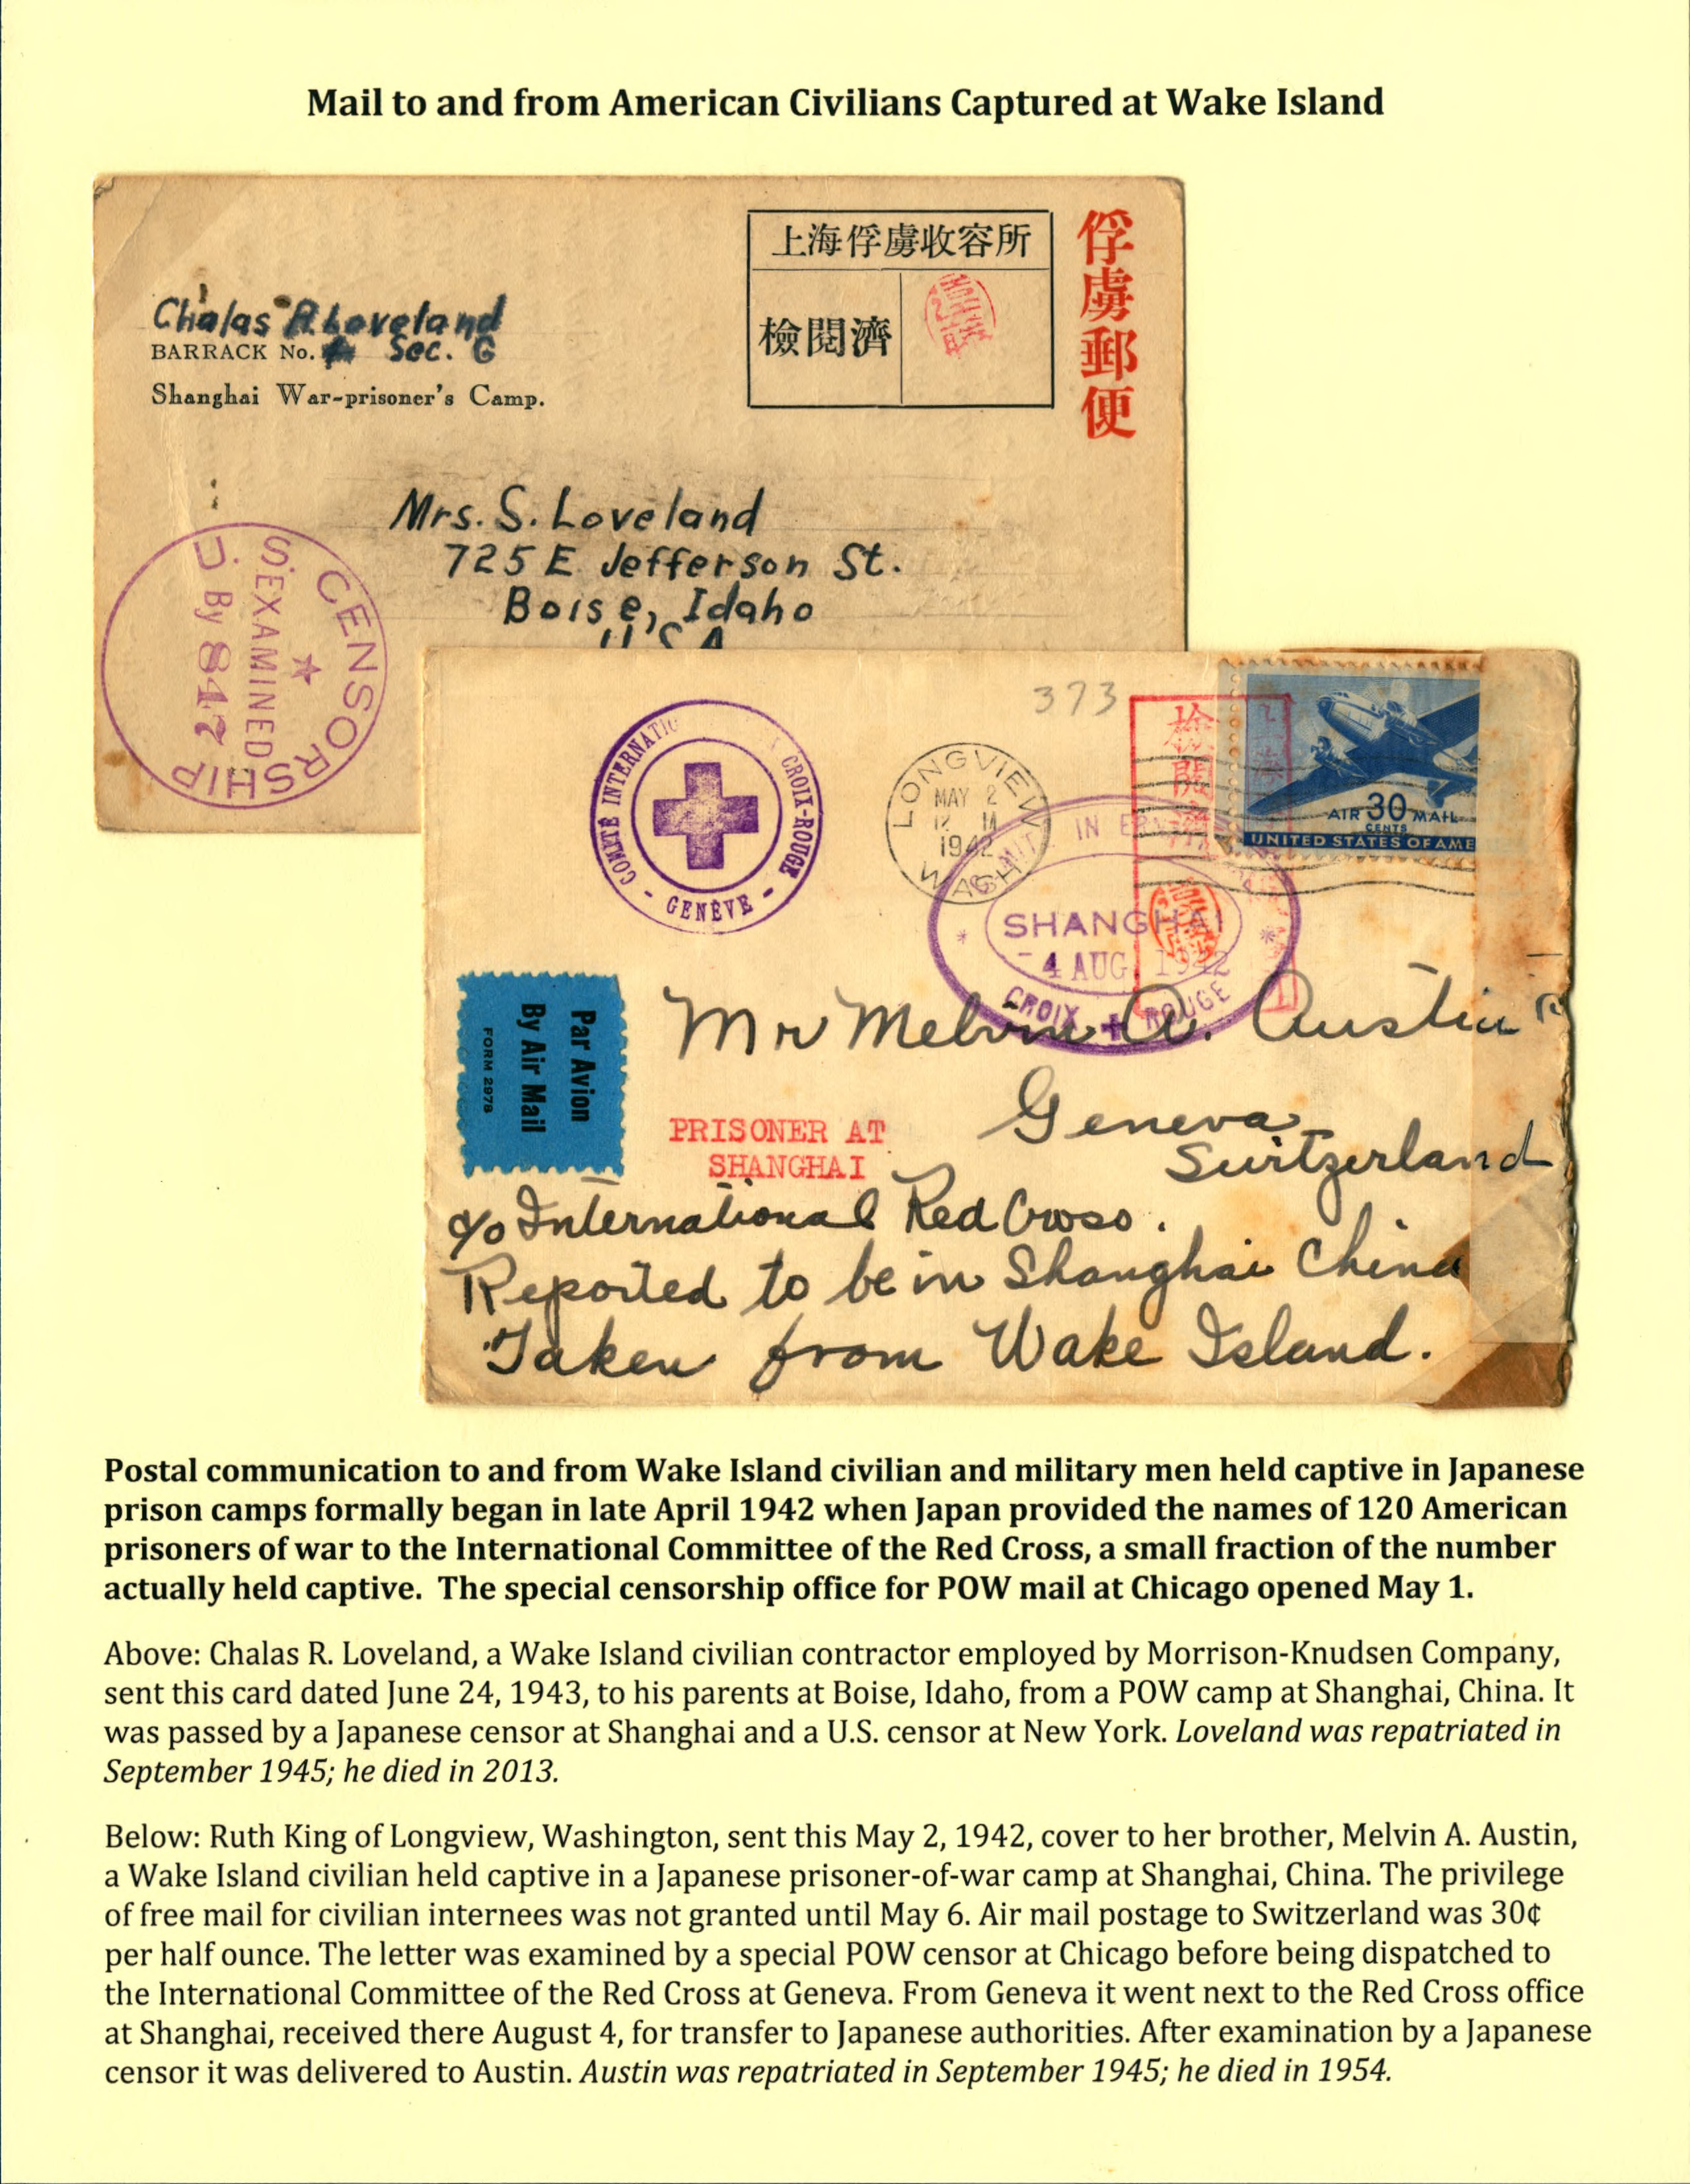 Mail to and from American Civilians Captured at Wake Island
上海俘虜收容所
檢閱濟
俘虜郵便
Chalas R. Loveland
BARRACK No. Sec. G
Shanghai War-prisoner's Camp.
Mrs. S. Loveland
725 E Jefferson St.
Boise, Idaho
U.S.A.
U.S. CENSORSHIP
EXAMINED
By 842
373
COMITÉ INTERNATIO CROIX-ROUGE - GENÈVE -
LONGVIEW
MAY 2
12 M
1942
WASH
檢閱濟
AIR 30 MAIL
CENTS
UNITED STATES OF AME
SHANGHAI
- 4 AUG 1942
CROIX ROUGE
Par Avion
By Air Mail
FORM 2978
Mr Melvin A. Austin
Geneva
Switzerland
PRISONER AT
SHANGHAI
c/o International Red Cross.
Reported to be in Shanghai China
Taken from Wake Island.
Postal communication to and from Wake Island civilian and military men held captive in Japanese
prison camps formally began in late April 1942 when Japan provided the names of 120 American
prisoners of war to the International Committee of the Red Cross, a small fraction of the number
actually held captive. The special censorship office for POW mail at Chicago opened May 1.
Above: Chalas R. Loveland, a Wake Island civilian contractor employed by Morrison-Knudsen Company,
sent this card dated June 24, 1943, to his parents at Boise, Idaho, from a POW camp at Shanghai, China. It
was passed by a Japanese censor at Shanghai and a U.S. censor at New York. Loveland was repatriated in
September 1945; he died in 2013.
Below: Ruth King of Longview, Washington, sent this May 2, 1942, cover to her brother, Melvin A. Austin,
a Wake Island civilian held captive in a Japanese prisoner-of-war camp at Shanghai, China. The privilege
of free mail for civilian internees was not granted until May 6. Air mail postage to Switzerland was 30¢
per half ounce. The letter was examined by a special POW censor at Chicago before being dispatched to
the International Committee of the Red Cross at Geneva. From Geneva it went next to the Red Cross office
at Shanghai, received there August 4, for transfer to Japanese authorities. After examination by a Japanese
censor it was delivered to Austin. Austin was repatriated in September 1945; he died in 1954.